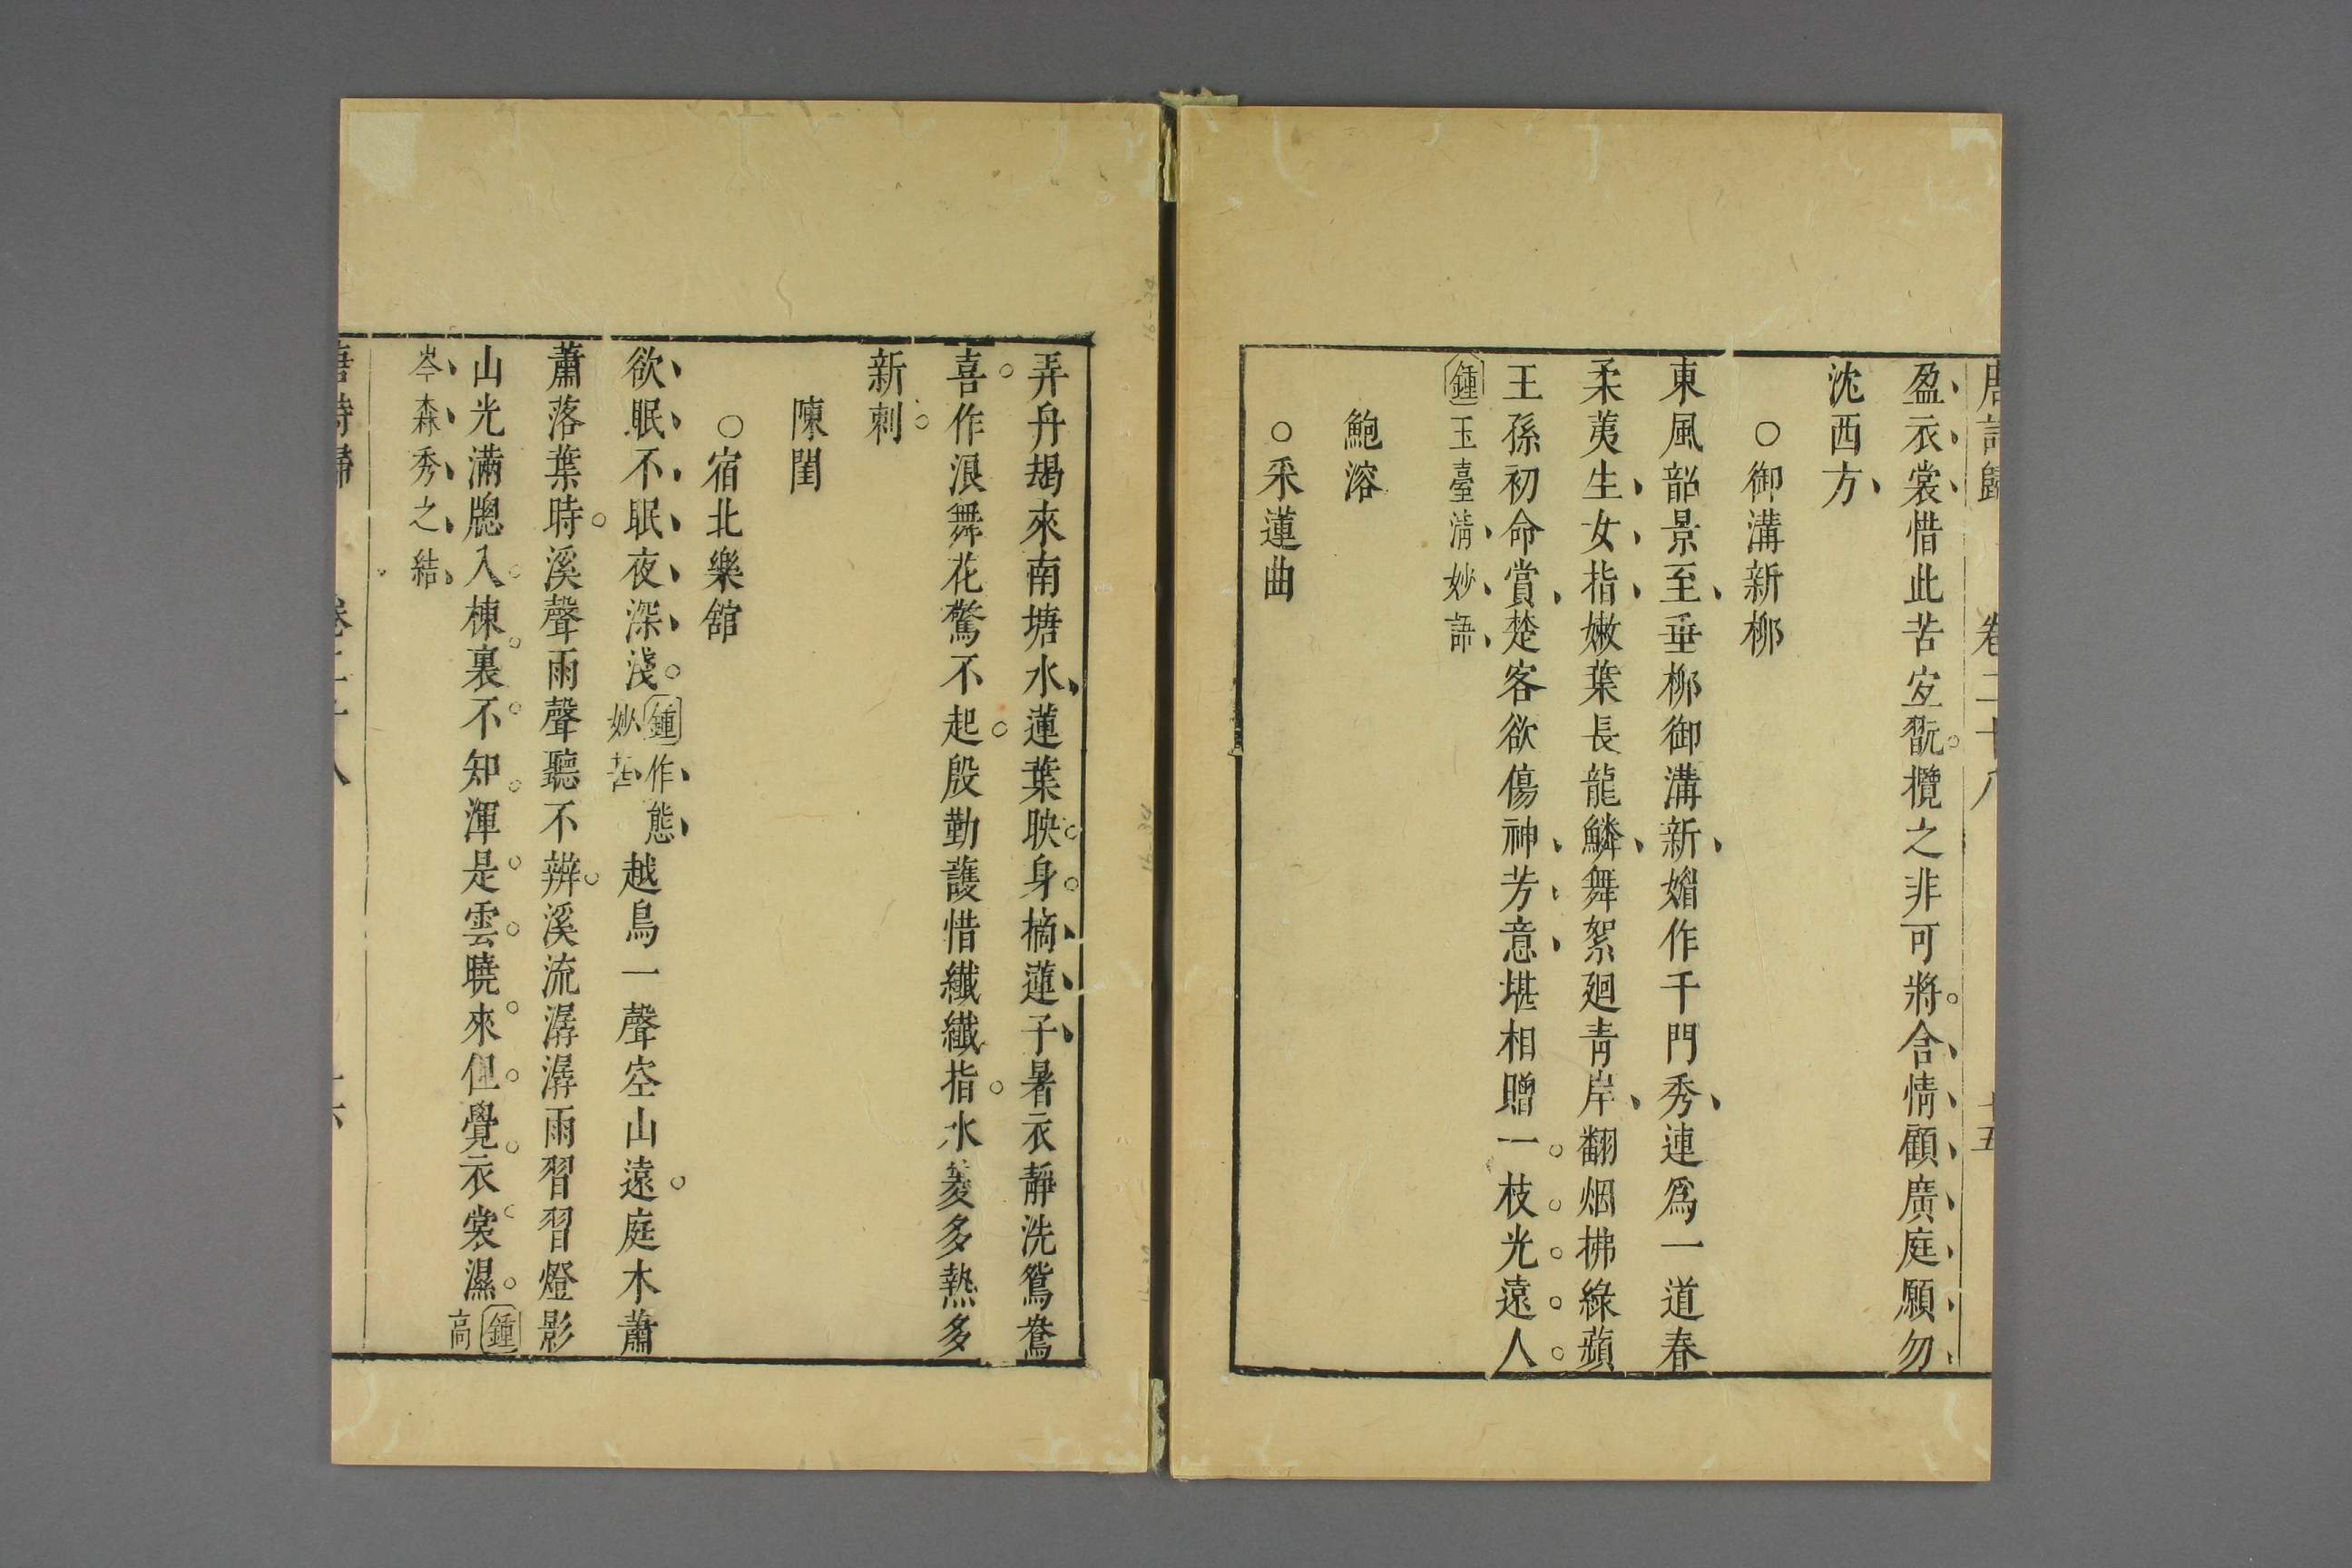 唐詩歸 卷二十八 十五
盈衣裳惜此苦宐翫攬之非可將含情顧廣庭願勿
沈西方
○御溝新柳
東風韶景至垂柳御溝新媚作千門秀連爲一道春
柔荑生女指嫩葉長龍鱗舞絮廻青岸翻烟拂綠蘋
王孫初命賞楚客欲傷神芳意堪相贈一枝光遠人
鍾玉臺淸妙語
鮑溶
○采蓮曲
弄舟朅來南塘水蓮葉映身摘蓮子暑衣靜洗鴛鴦
喜作浪舞花驚不起殷勤護惜纖纖指水菱多熱多
新刺
陳閏
○宿北樂舘
欲眠不眠夜深淺鍾作態妙甚越鳥一聲空山遠庭木蕭
蕭落葉時溪聲雨聲聽不辨溪流潺潺雨習習燈影
山光滿牕入棟裏不知渾是雲曉來但覺衣裳濕鍾高
岑森秀之結
唐詩歸 卷二十八 十六